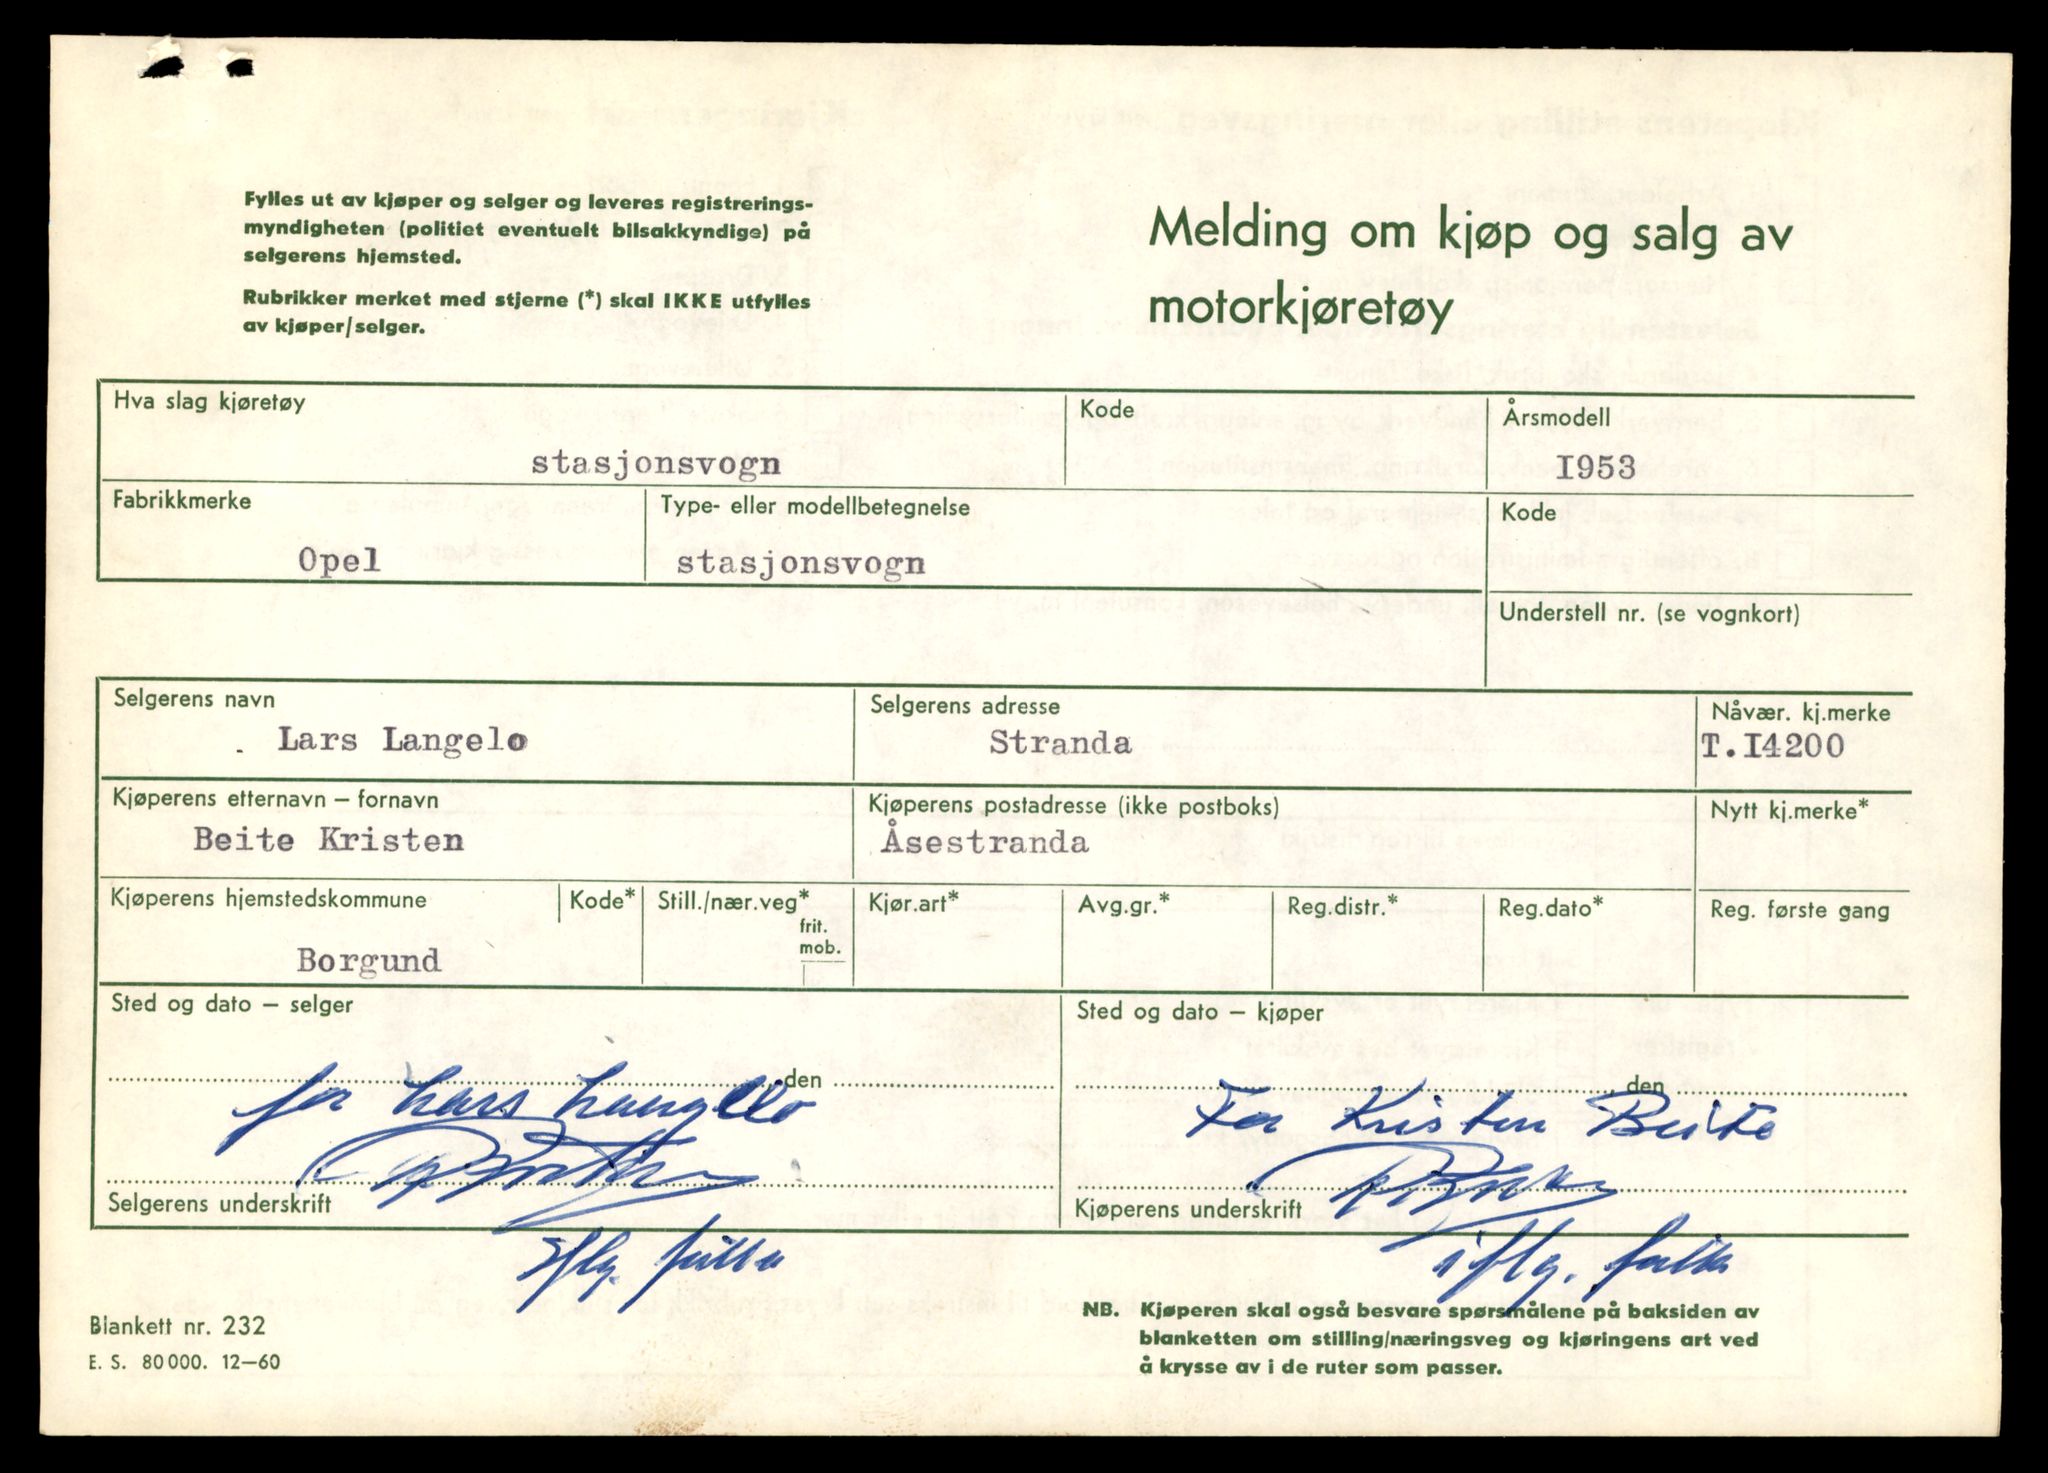 Fylles ut av kjøper og selger og leveres registrerings-
myndigheten (politiet eventuelt bilsakkyndige) på
selgerens hjemsted.
Rubrikker merket med stjerne (*) skal IKKE utfylles
av kjøper/selger.
Melding om kjøp og salg av
motorkjøretøy
Hva slag kjøretøy
stasjonsvogn
Kode
Årsmodell
I953
Fabrikkmerke
Opel
Type- eller modellbetegnelse
stasjonsvogn
Kode
Understell nr. (se vognkort)
Selgerens navn
Lars Langelo
Selgerens adresse
Stranda
Nåvær. kj.merke
T.I4200
Kjøperens etternavn – fornavn
Beite Kristen
Kjøperens postadresse (ikke postboks)
Åsestranda
Nytt kj.merke*
Kjøperens hjemstedskommune
Borgund
Kode*
Still./nær.veg*
frit.
mob.
Kjør.art*
Avg.gr.*
Reg.distr.*
Reg.dato*
Reg. første gang
Sted og dato – selger
den
for Lars Langello
Selgerens underskrift
Sted og dato – kjøper
den
For Kristen Beite
Kjøperens underskrift
iflg.
NB. Kjøperen skal også besvare spørsmålene på baksiden av
blanketten om stilling/næringsveg og kjøringens art ved
å krysse av i de ruter som passer.
Blankett nr. 232
E. S. 80 000. 12–60